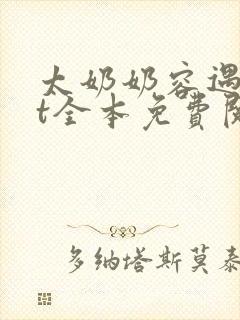 太奶奶容遇
t全本免費
多纳塔斯莫泰